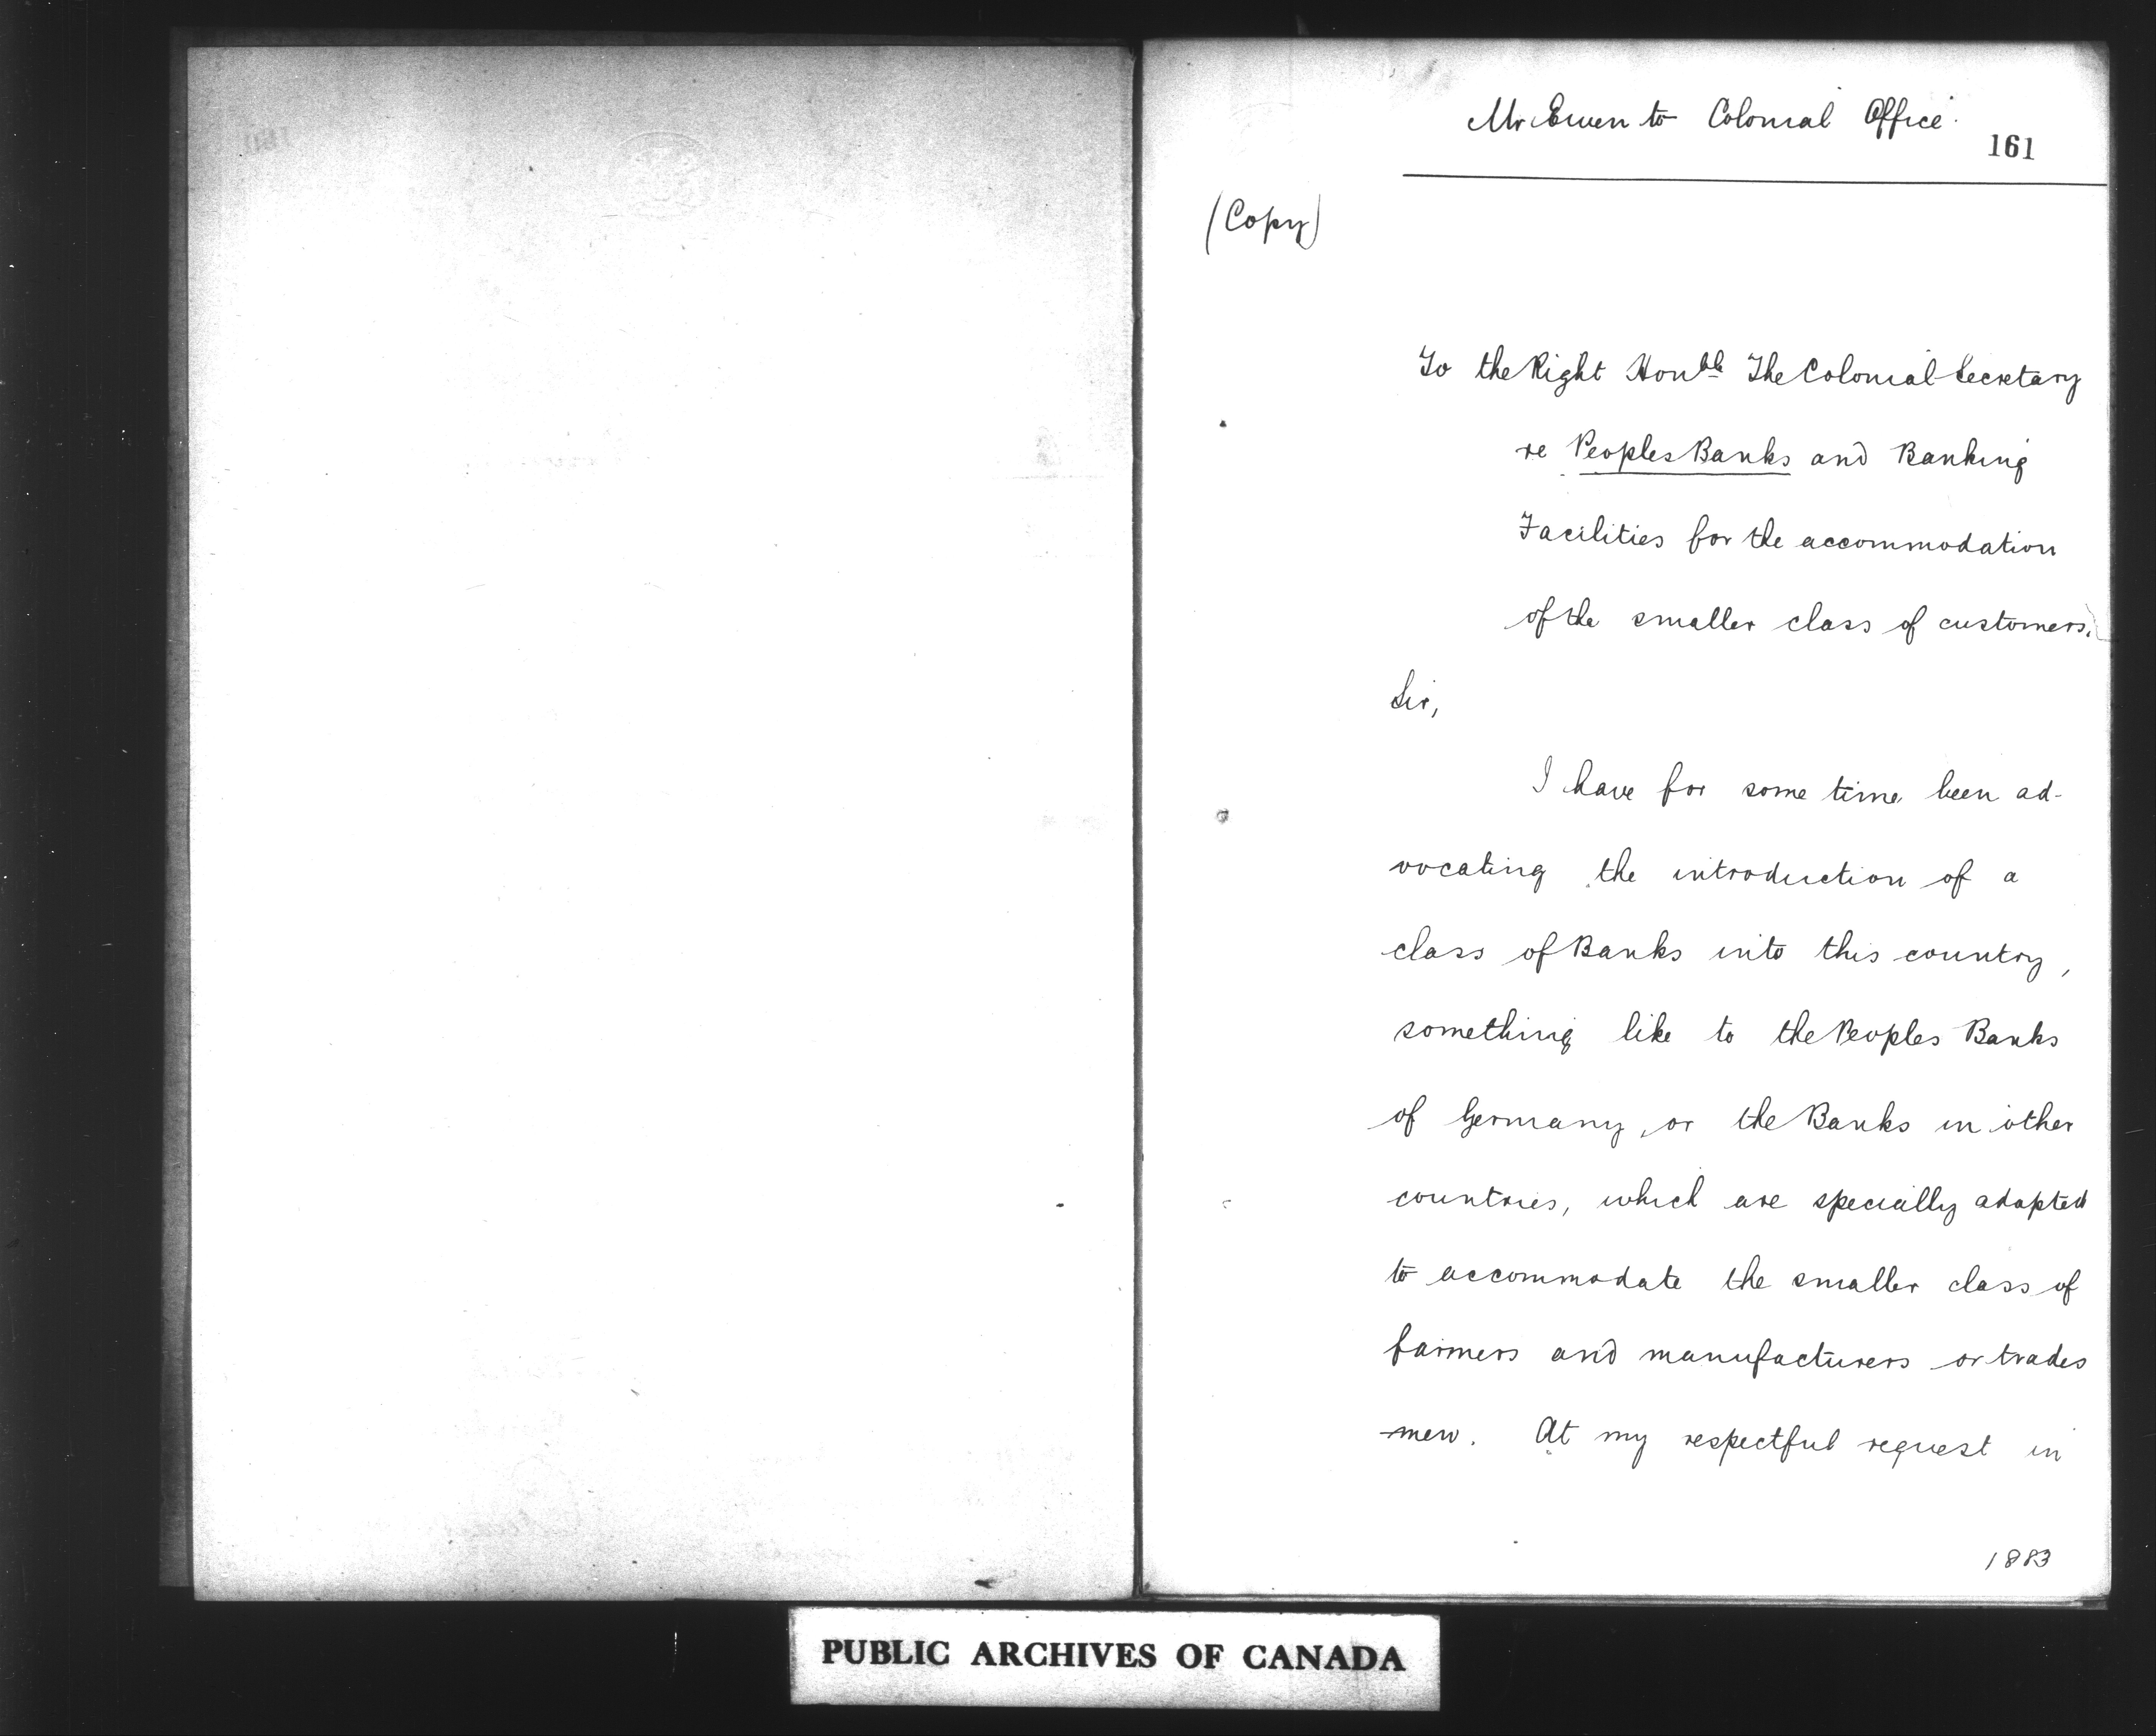 Mr Ewen to Colonial Office.
161
(Copy)
To the Right Honble The Colonial Secretary
re Peoples Banks and Banking
Facilities for the accommodation
of the smaller class of customers.
Sir,
I have for some time been ad-
vocating the introduction of a
class of Banks into this country,
something like to the Peoples Banks
of Germany, or the Banks in other
countries, which are specially adapted
to accommodate the smaller class of
farmers and manufacturers or trades
-men. At my respectful request in
1883
PUBLIC ARCHIVES OF CANADA